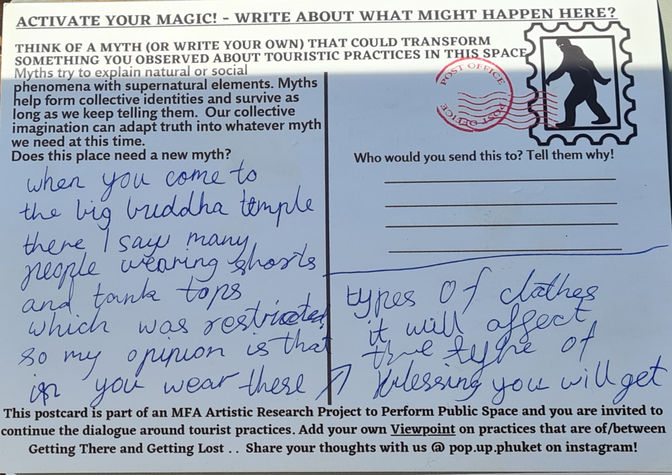 ACTIVATE YOUR MAGIC! - WRITE ABOUT WHAT MIGHT HAPPEN HERE?
THINK OF A MYTH (OR WRITE YOUR OWN) THAT COULD TRANSFORM
SOMETHING YOU OBSERVED ABOUT TOURISTIC PRACTICES IN THIS SPACE
Myths try to explain natural or social
phenomena with supernatural elements. Myths
help form collective identities and survive as
long as we keep telling them. Our collective
imagination can adapt truth into whatever myth
we need at this time.
Does this place need a new myth?
when you come to
the big buddha temple
there I saw many
people wearing shorts
and tank tops
which was restricted
so my opinion is that
if you wear these
POST OFFICE
POST OFFICE
Who would you send this to? Tell them why!
types of clothes
it will affect
the type of
blessing you will get
This postcard is part of an MFA Artistic Research Project to Perform Public Space and you are invited to
continue the dialogue around tourist practices. Add your own Viewpoint on practices that are of/between
Getting There and Getting Lost . . Share your thoughts with us @ pop.up.phuket on instagram!